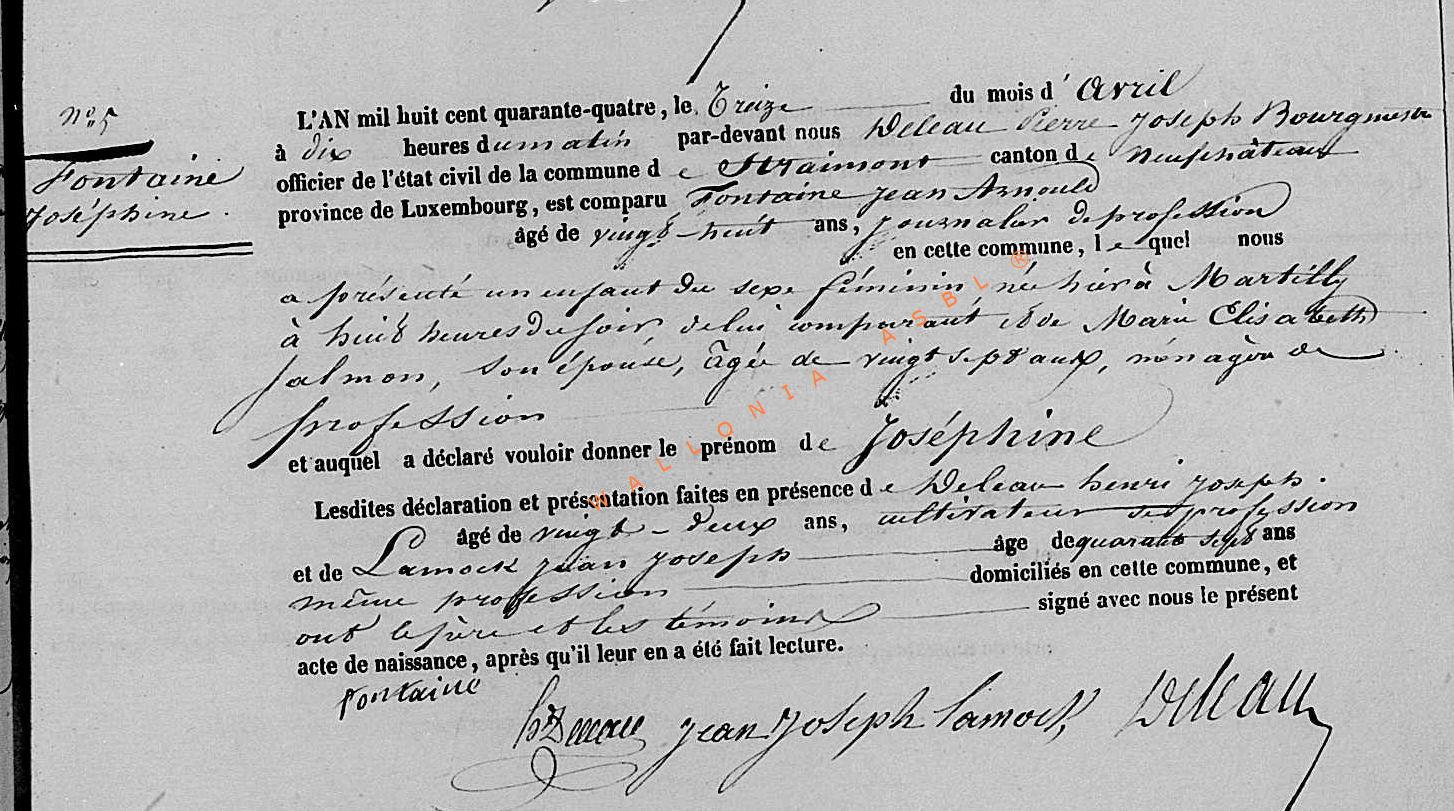 N° 5
Fontaine
Joséphine.
L'AN mil huit cent quarante-quatre, le Treize du mois d' Avril
à dix heures du matin par-devant nous Deleau Pierre Joseph Bourgmestre
officier de l'état civil de la commune de Straimont canton de Neufchâteau
province de Luxembourg, est comparu Fontaine Jean Arnould
âgé de vingt-huit ans, journalier de profession
en cette commune, lequel nous
a présenté un enfant du sexe féminin, née hier à Martilly
à huit heures du soir de lui comparant et de Marie Elisabeth
Jalmon, son épouse, âgée de vingt sept ans, ménagère de
profession
et auquel a déclaré vouloir donner le prénom de Joséphine
Lesdites déclaration et présentation faites en présence de Deleau henri joseph.
âgé de vingt-deux ans, cultivateur de profession
et de Lamock jean joseph âge de quarante sept ans
même profession domiciliés en cette commune, et
ont le père et les témoins signé avec nous le présent
acte de naissance, après qu'il leur en a été fait lecture.
fontaine
h Deleau jean joseph lamock, Deleau
WALLONIA ASBL ®